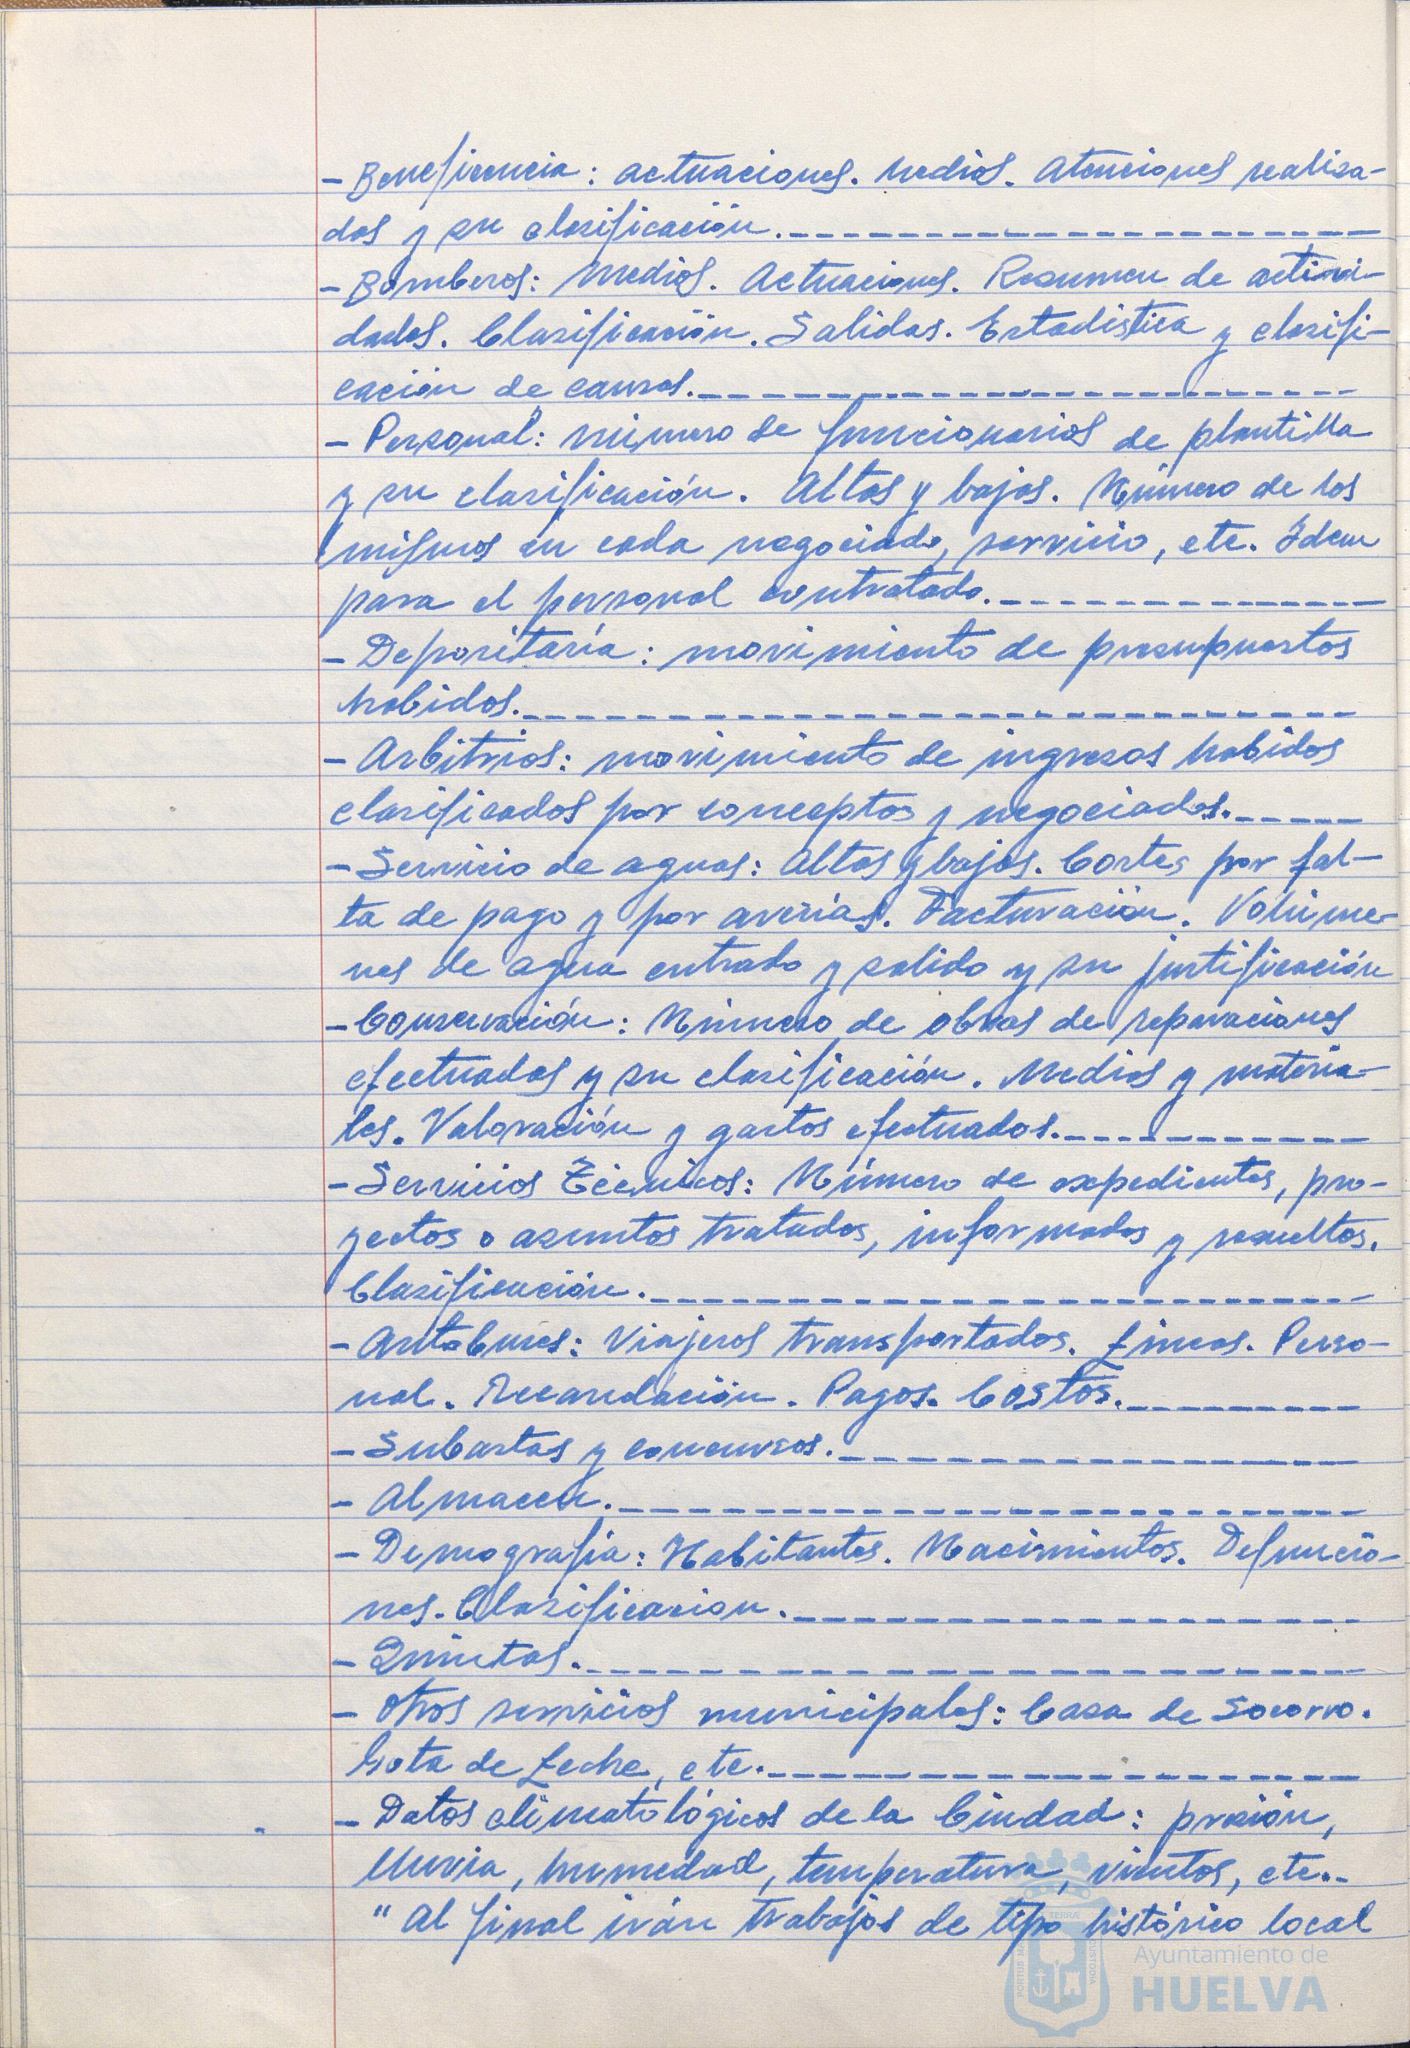 - Beneficencia: actuaciones. Medios. Atenciones realiza-
das y su clasificación.
- Bomberos: Medios. Actuaciones. Resumen de activi-
dades. Clasificación. Salidas. Estadística y clasifi-
cación de causas.
- Personal: número de funcionarios de plantilla
y su clasificación. Altas y bajas. Número de los
mismos en cada negociado, servicio, etc. Idem
para el personal contratado.
- Depositaría: movimiento de presupuestos
habidos.
- Arbitrios: movimiento de ingresos habidos
clasificados por conceptos y negociados.
- Servicio de aguas: Altas y bajas. Cortes por fal-
ta de pago y por averías. Facturación. Volúme-
nes de agua entrado y salido y su justificación
- Conservación: Número de obras de reparaciones
efectuadas y su clasificación. Medios y materia-
les. Valoración y gastos efectuados.
- Servicios Técnicos: Número de expedientes, pro-
yectos o asuntos tratados, informados y resueltos.
Clasificación.
- Autobuses: Viajeros transportados. Líneas. Perso-
nal. Recaudación. Pagos. Costos.
- Subastas y concursos.
- Almacen.
- Demografía: Habitantes. Nacimientos. Defuncio-
nes. Clasificacion.
- Quintas.
- Otros servicios municipales: Casa de Socorro.
Gota de Leche, etc.
- Datos climatológicos de la Ciudad: presión,
lluvia, humedad, temperatura, vientos, etc..
"Al final irán trabajos de tipo histórico local
Ayuntamiento de
HUELVA